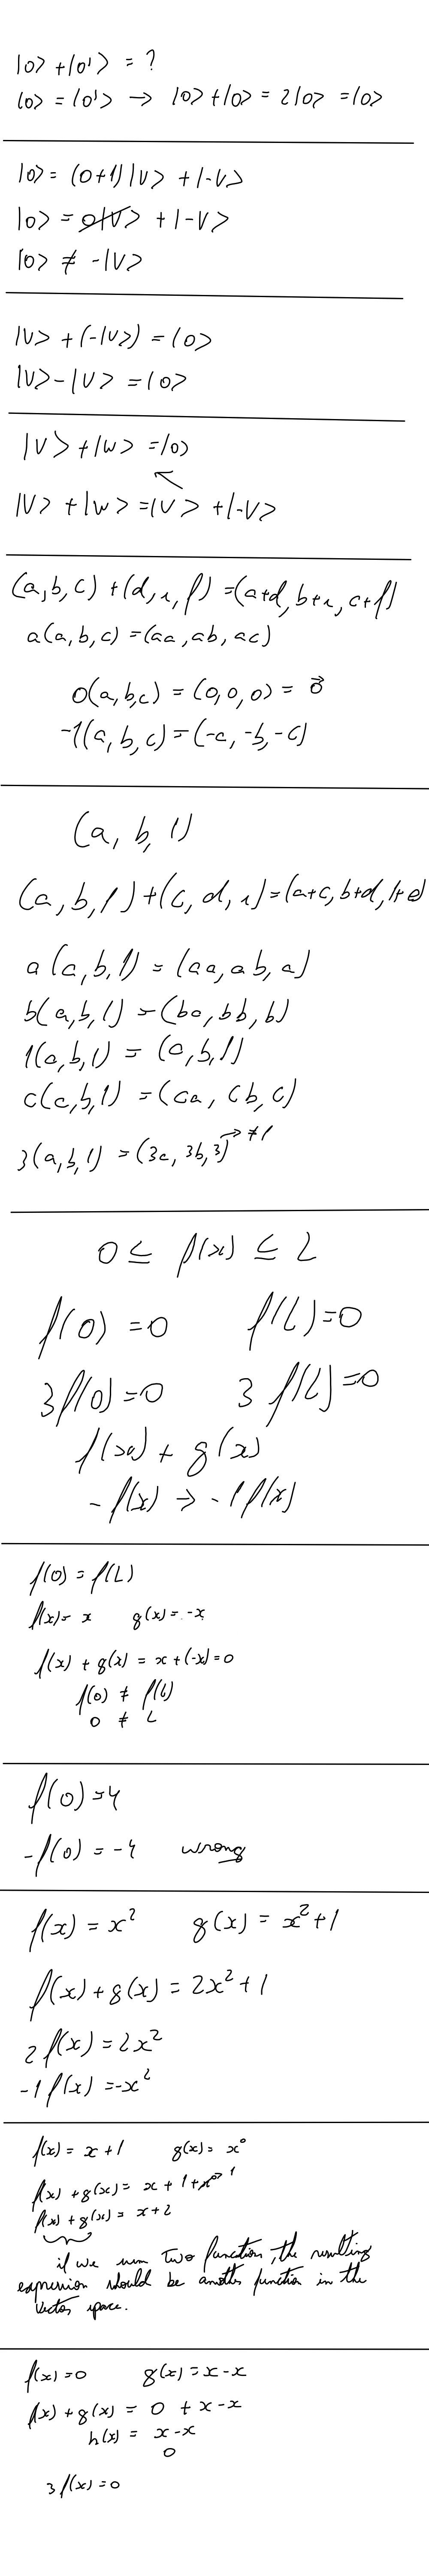 |0> + |0'> = ?
|0> = |0'> → |0> + |0> = 2|0> = |0>
|0> = (0+1)|V> + |-V>
|0> = 0|V> + |-V>
|0> ≠ -|V>
|V> + (-|V>) = |0>
|V> - |V> = |0>
|V> + |W> = |0>
|V> + |W> = |V> + |-V>
(a, b, c) + (d, e, f) = (a+d, b+e, c+f)
a(a, b, c) = (aa, ab, ac)
0(a, b, c) = (0, 0, 0) = 0⃗
-1(a, b, c) = (-a, -b, -c)
(a, b, 1)
(a, b, 1) + (c, d, e) = (a+c, b+d, 1+e)
a(a, b, 1) = (aa, ab, a)
b(a, b, 1) = (ba, bb, b)
1(a, b, 1) = (a, b, 1)
c(a, b, 1) = (ca, cb, c)
3(a, b, 1) = (3a, 3b, 3) → ≠ 1
0 ≤ f(x) ≤ L
f(0) = 0 f(L) = 0
3f(0) = 0 3f(L) = 0
f(x) + g(x)
-f(x) → -1f(x)
f(0) = f(L)
f(x) = x g(x) = -x
f(x) + g(x) = x + (-x) = 0
f(0) ≠ f(L)
0 ≠ L
f(0) = 4
-f(0) = -4 wrong
f(x) = x² g(x) = x² + 1
f(x) + g(x) = 2x² + 1
2f(x) = 2x²
-1f(x) = -x²
f(x) = x + 1 g(x) = x⁰
f(x) + g(x) = x + 1 + x⁰ 1
f(x) + g(x) = x + 2
if we sum two function, the resulting
expression should be another function in the
vector space.
f(x) = 0 g(x) = x - x
f(x) + g(x) = 0 + x - x
h(x) = x - x
0
3f(x) = 0